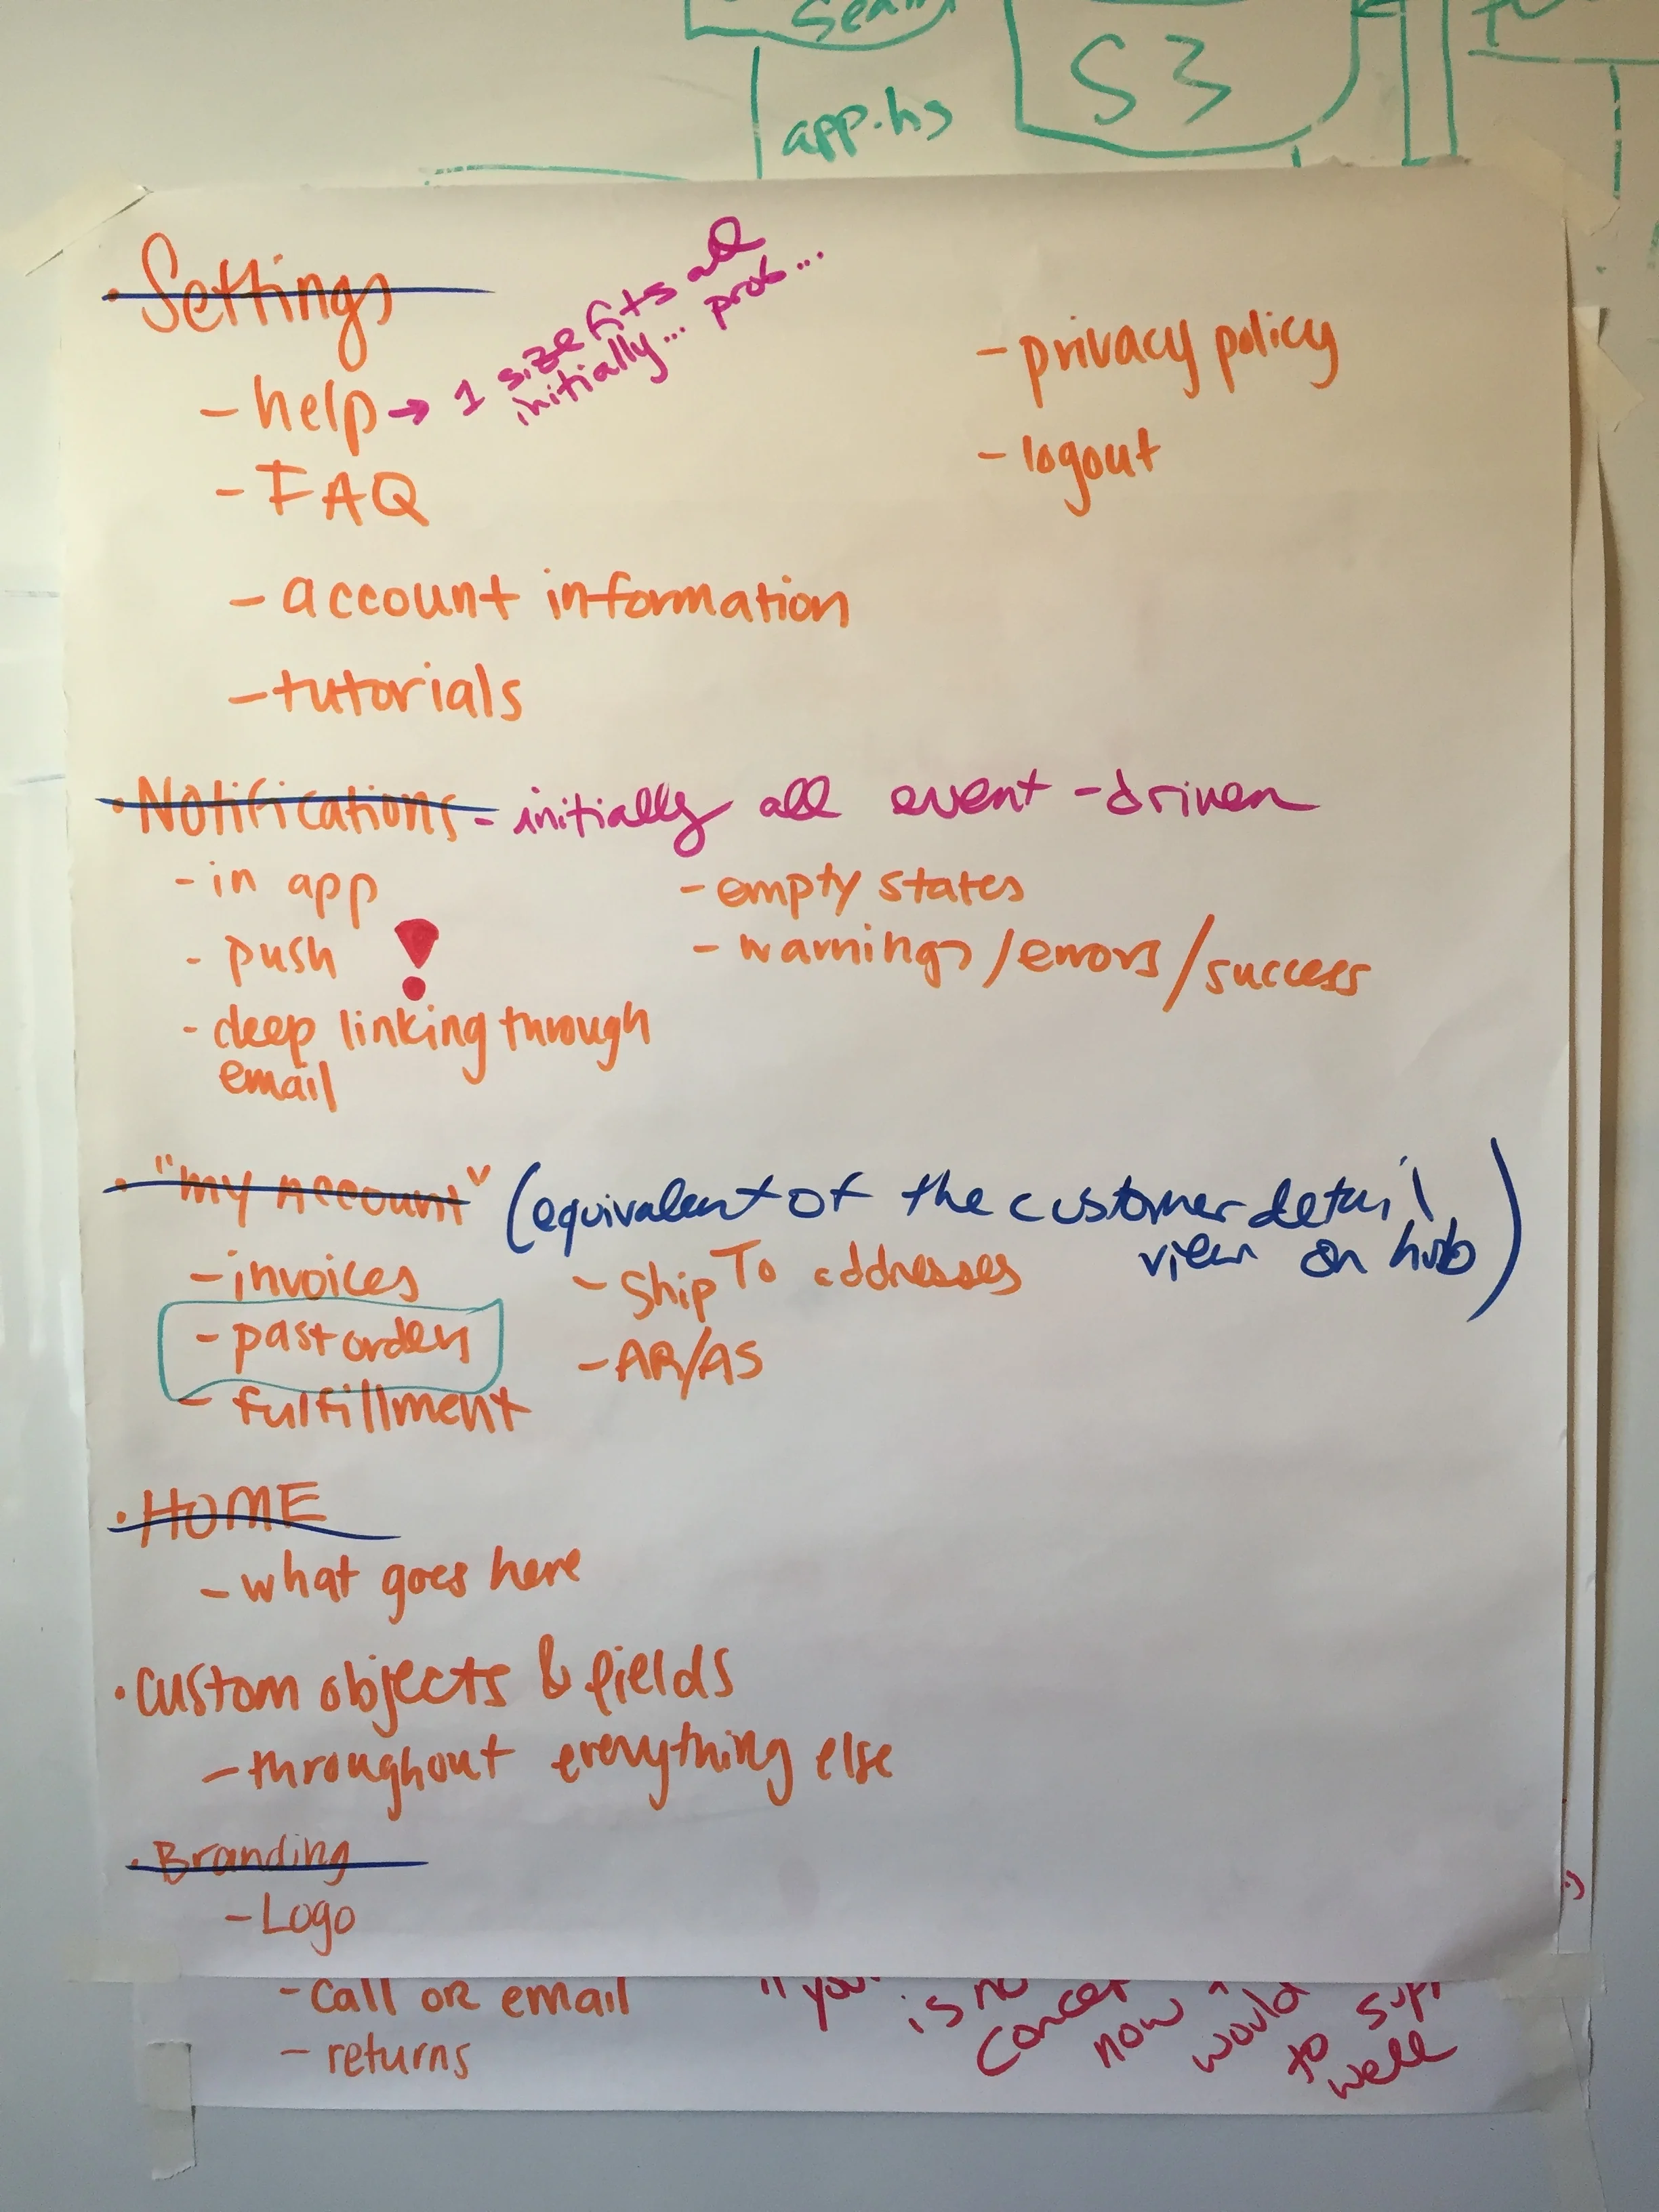 S3
app.hs
· Settings
- help → 1 size fits all
initially... prob...
- FAQ
- account information
- tutorials
- privacy policy
- logout
· Notifications - initially all event-driven
- in app
- push !
- deep linking through
email
- empty states
- warnings/errors/success
· "my account" (equivalent of the customer detail
view on hub)
- invoices
- past orders
- fulfillment
- Ship To addresses
- AR/AS
· HOME
- what goes here
· custom objects & fields
- throughout everything else
· Branding
- Logo
- call or email
- returns
is no
now
would
to
well